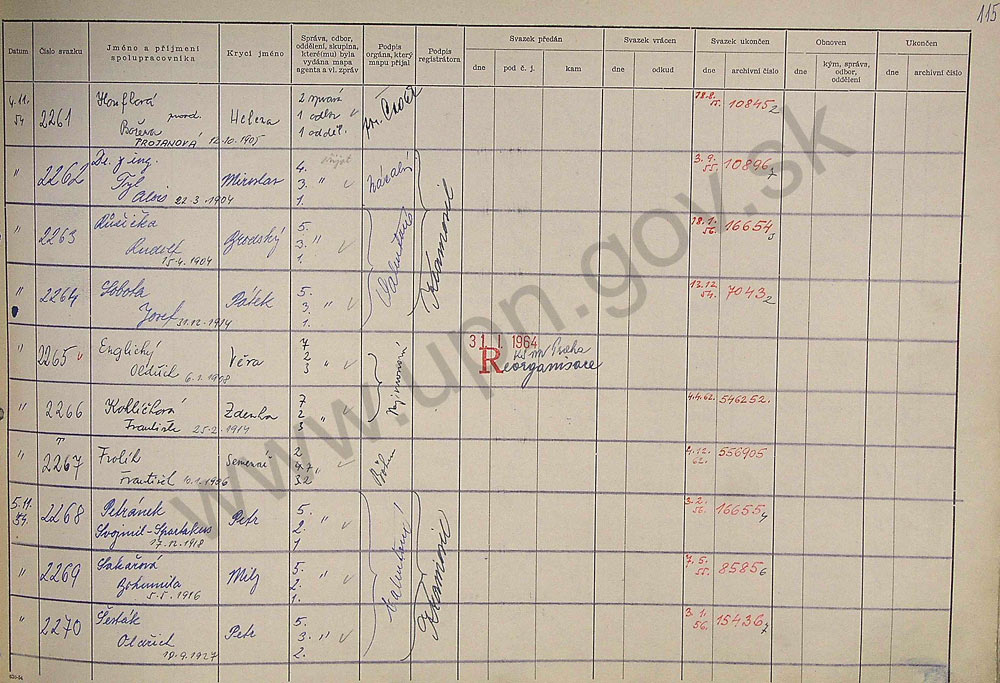 115
Datum
Číslo svazku
Jméno a příjmení spolupracovníka
Krycí jméno
Správa, odbor, oddělení, skupina, které(mu) byla vydána mapa agenta a vl. zpráv
Podpis orgána, který mapu přijal
Podpis registrátora
Svazek předán
dne
pod č. j.
kam
Svazek vrácen
dne
odkud
Svazek ukončen
dne
archivní číslo
Obnoven
dne
kým, správa, odbor, oddělení
Ukončen
dne
archivní číslo
4.11. 54
2261
provd.
Božena
TROJANOVÁ 12.10.1905
Helena
2 správa
1 odbor
1 odděl.
18.8. 55. 10845 2
" 2262
Dr. y ing.
Tyl
Alois 22.3.1904
Miroslav
4.
3. "
1.
3.9. 55. 10896 7
" 2263
Růžička
Rudolf
15.4.1904
Brodský
5.
3. "
1.
18.1. 56. 16654 3
" 2264
Sobota
Josef 31.12.1914
Pátek
5.
3. "
1.
13.12. 54. 7043 2
" 2265
Englichý
Oldřich 6.1.1908
Věra
7
2
3 "
31. I. 1964
KS MV Praha
Reorganisace
" 2266
Kohlíčková
Františka 25.2.1914
Zdenka
7
2
3 "
4.4.62. 546252.
" 2267
Frolík
František 10.1.1906
2
4.7 "
3.2
Böhm
4.12. 62. 556905
5.11. 54.
2268
Petránek
Svojmil-Spartakus
17.12.1918
Petr
5.
2. "
1
3.2. 56. 16655 4
" 2269
Sakařová
Bohumila
5.5.1916
Milý
5.
2. "
1.
7.5. 55. 8585 6
" 2270
Šesták
Oldřich
18.9.1927
Petr
5.
3. "
2.
3.1. 56. 15436 7
www.upn.gov.sk